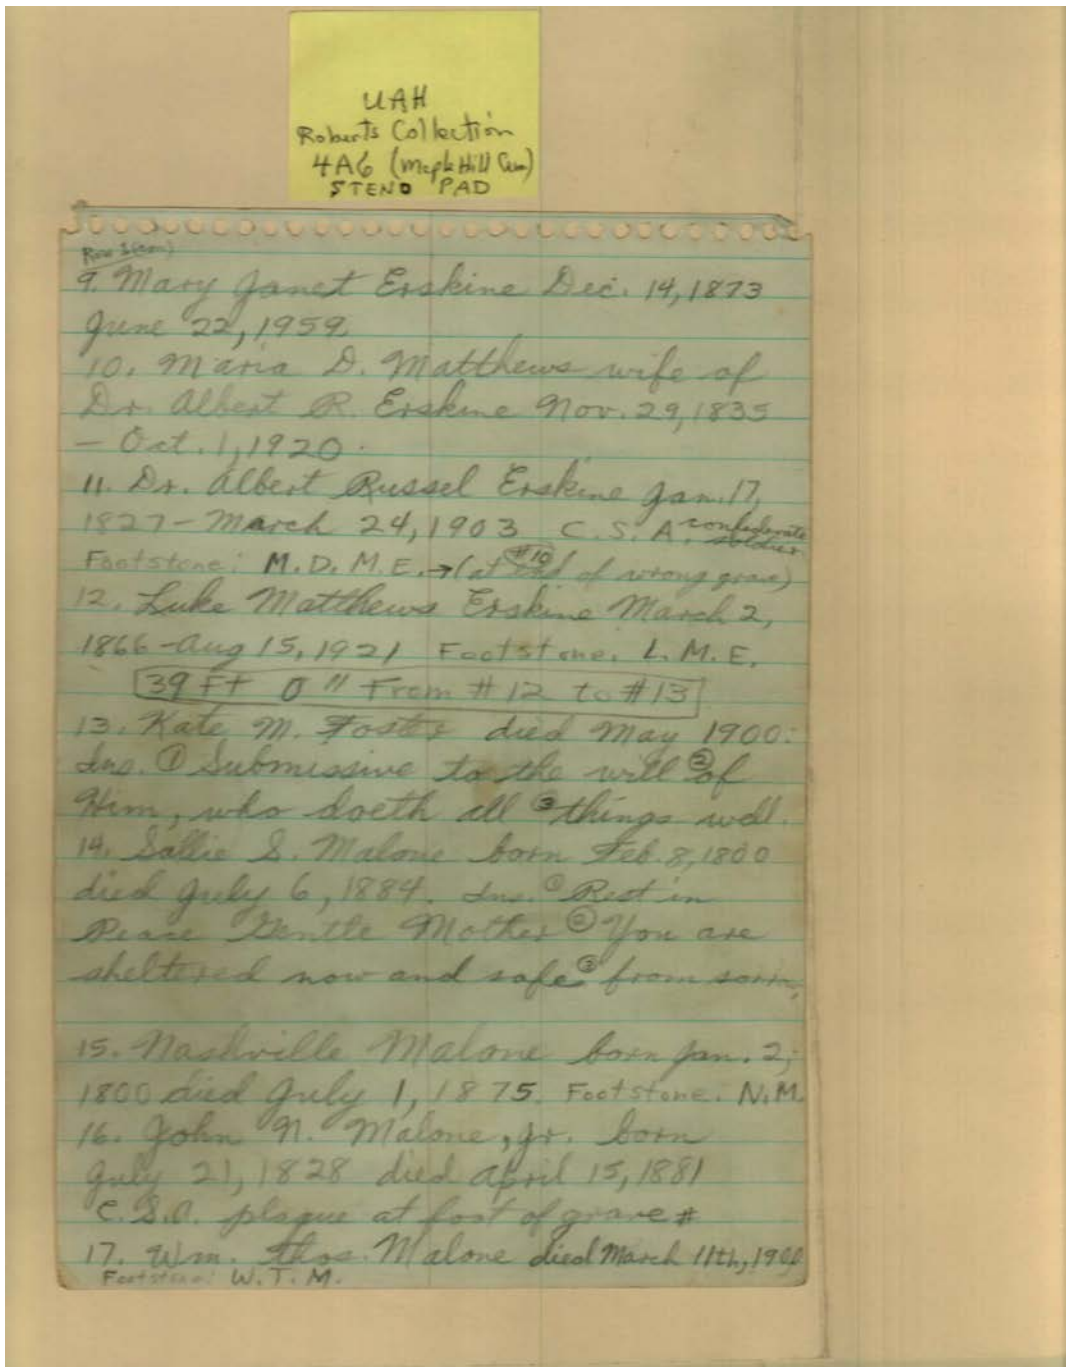 UAH
Roberts Collection
4A6 (Maple Hill Cem)
STENO PAD
Row 1 (con)
9. Mary Janet Erskine Dec. 14, 1873
June 22, 1959.
10. Maria D. Matthews wife of
Dr. Albert R. Erskine Nov. 29, 1835
— Oct. 1, 1920.
11. Dr. Albert Russel Erskine Jan. 17,
1827 - March 24, 1903 C. S. A. confederate soldier.
Footstone: M. D. M. E. → (at #10 of wrong grave)
12. Luke Matthews Erskine March 2,
1866 - Aug 15, 1921 Footstone: L. M. E.
39 Ft 0" From #12 to #13
13. Kate M. Foster died May 1900:
Ins. ① Submissive to the will ② of
Him, who doeth all ③ things well.
14. Sallie S. Malone born Feb. 8, 1800
died July 6, 1884. Ins. ① Rest in
Peace Gentle Mother ② You are
sheltered now and safe ③ from
15. Nashville Malone born Jan. 2,
1800 died July 1, 1875. Footstone: N. M.
16. John N. Malone, Jr. born
July 21, 1828 died April 15, 1881
C. S. A. plaque at foot of grave #
17. Wm. Thos. Malone died March 11th,
Footstone: W. T. M.